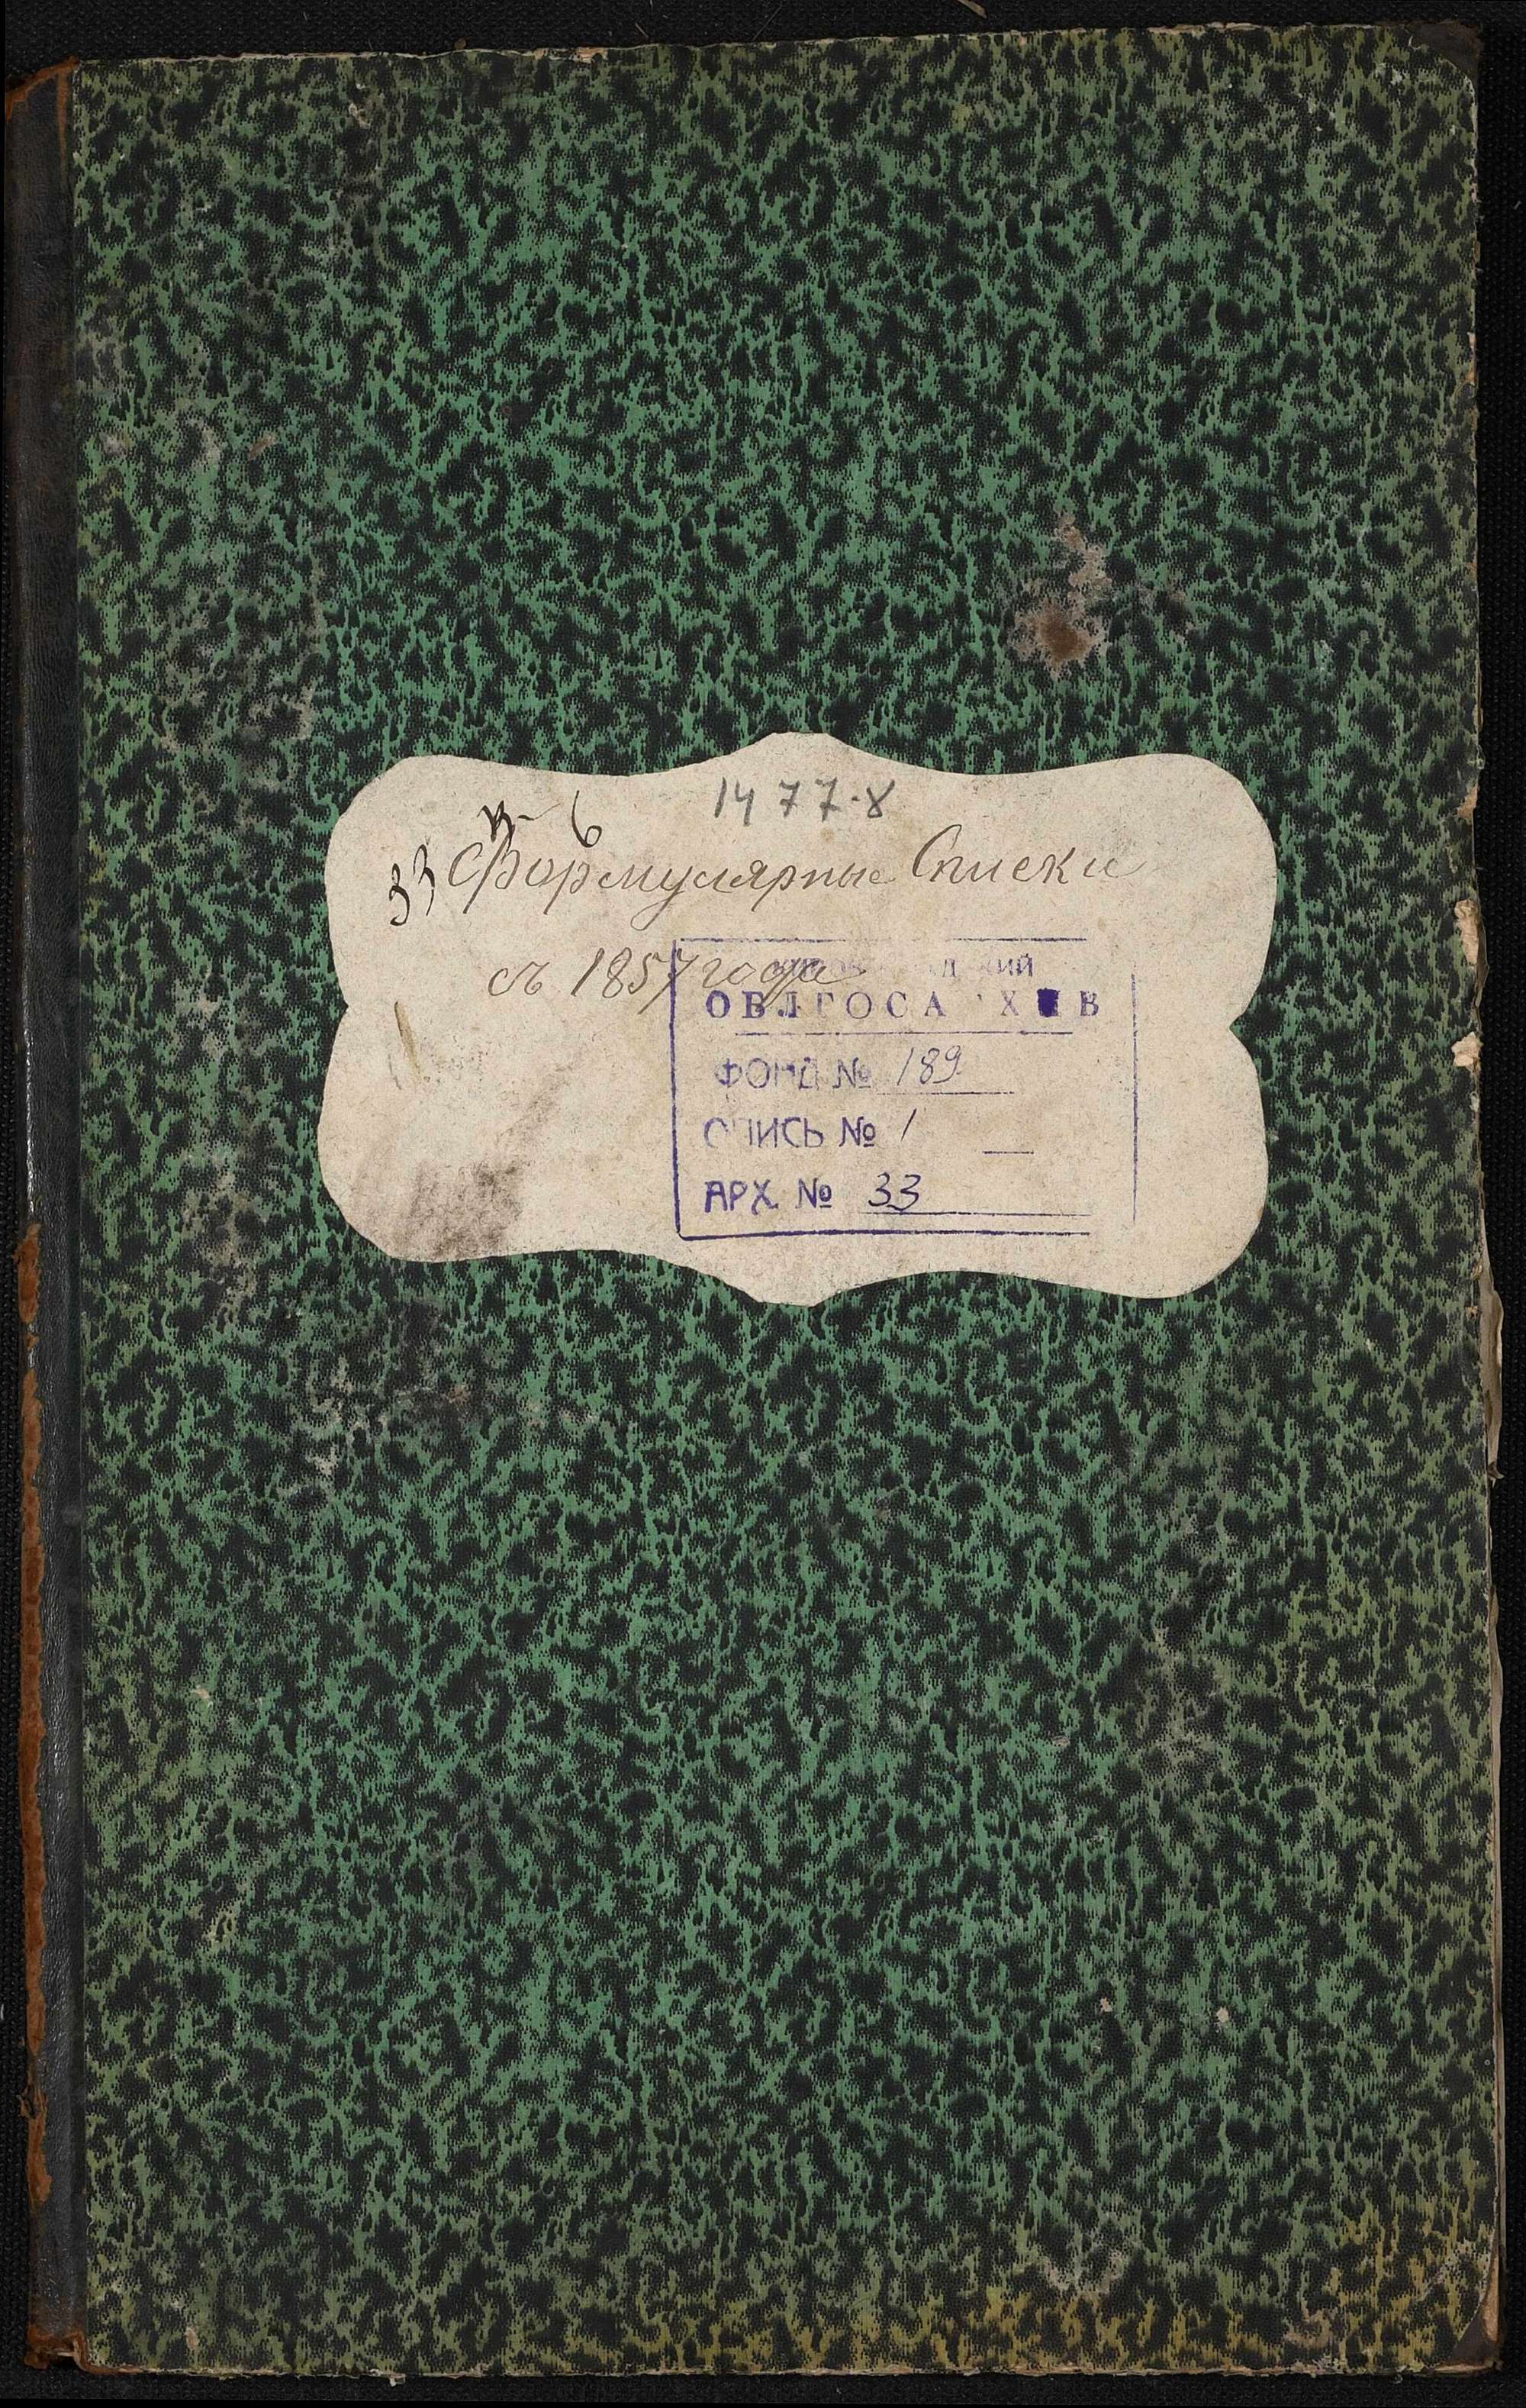 1477·8
6
33 Формулярные Списки
съ 1857 года
ОБЛГОСА ХИВ
ФОНД № 189
ОПИСЬ № 1
АРХ. № 33